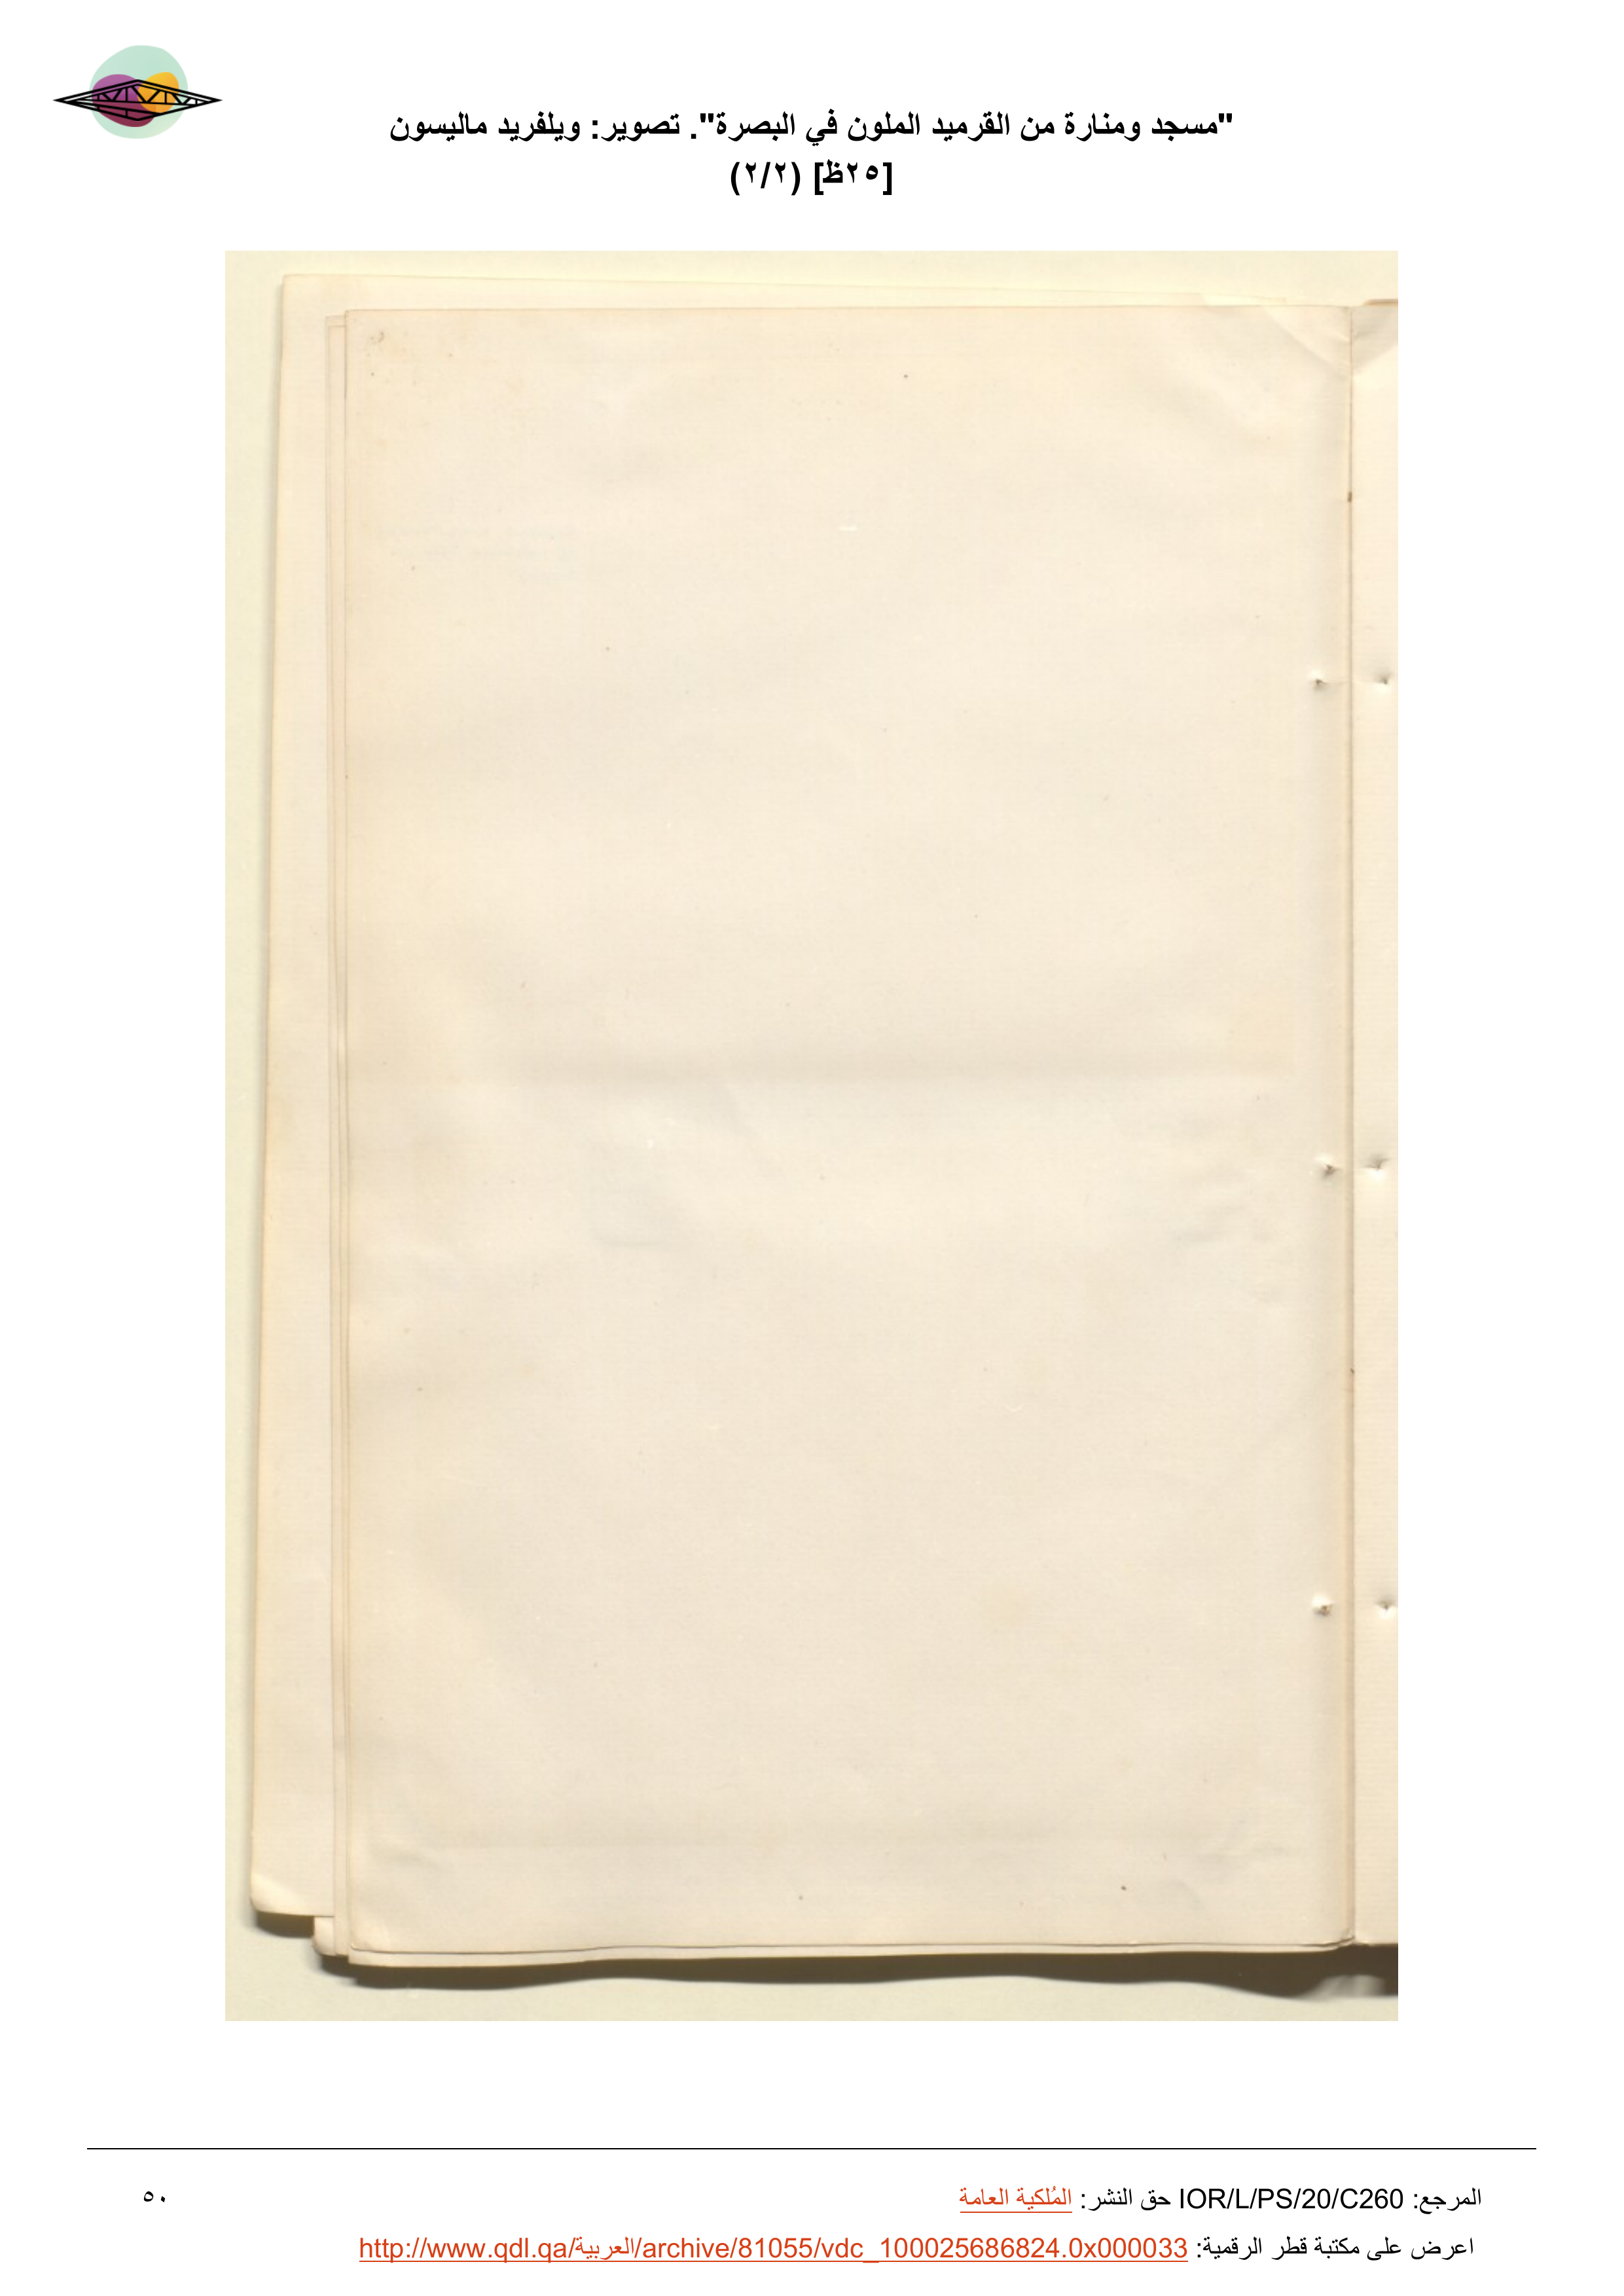 "مسجد ومنارة من القرميد الملون في البصرة". تصوير: ويلفريد ماليسون
[٢٥ظ] (٢/٢)
المرجع: IOR/L/PS/20/C260 حق النشر: المُلكية العامة
٥٠
اعرض على مكتبة قطر الرقمية: http://www.qdl.qa/العربية/archive/81055/vdc_100025686824.0x000033